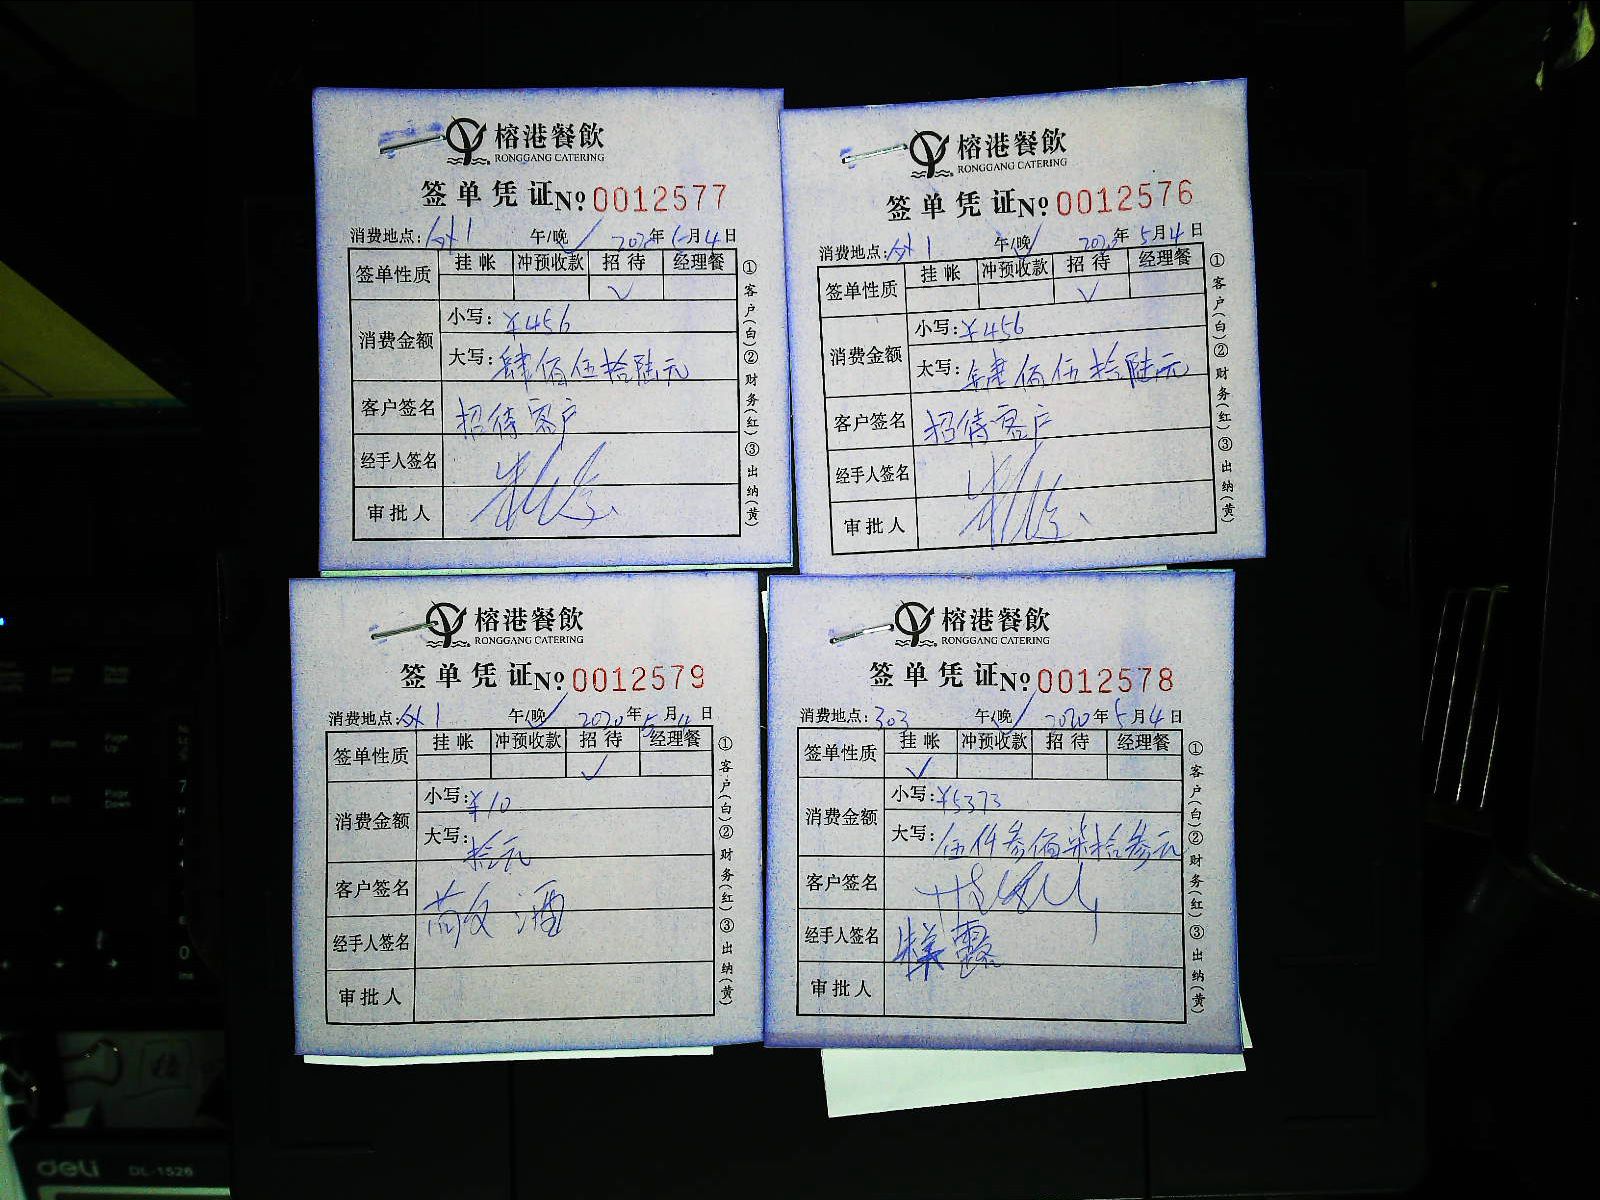 榕港餐飲
RONGGANG CATERING
签单凭证 № 0012577
消费地点: 外1 午/晚 2020年5月4日
签单性质 挂帐 冲预收款 招待 经理餐
✓
消费金额 小写: ¥456
大写: 肆佰伍拾陆元
客户签名 招待客户
经手人签名
审批人
①客户(白)②财务(红)③出纳(黄)
榕港餐飲
RONGGANG CATERING
签单凭证 № 0012576
消费地点: 外1 午/晚 2020年5月4日
签单性质 挂帐 冲预收款 招待 经理餐
✓
消费金额 小写: ¥456
大写: 肆佰伍拾陆元
客户签名 招待客户
经手人签名
审批人
①客户(白)②财务(红)③出纳(黄)
榕港餐飲
RONGGANG CATERING
签单凭证 № 0012579
消费地点: 外1 午/晚 2020年5月4日
签单性质 挂帐 冲预收款 招待 经理餐
✓
消费金额 小写: ¥10
大写: 拾元
客户签名
经手人签名
审批人
①客户(白)②财务(红)③出纳(黄)
榕港餐飲
RONGGANG CATERING
签单凭证 № 0012578
消费地点: 303 午/晚 2020年5月4日
签单性质 挂帐 冲预收款 招待 经理餐
✓
消费金额 小写: ¥5373
大写: 伍仟叁佰柒拾叁元
客户签名
经手人签名
审批人
①客户(白)②财务(红)③出纳(黄)
deli DL-1526